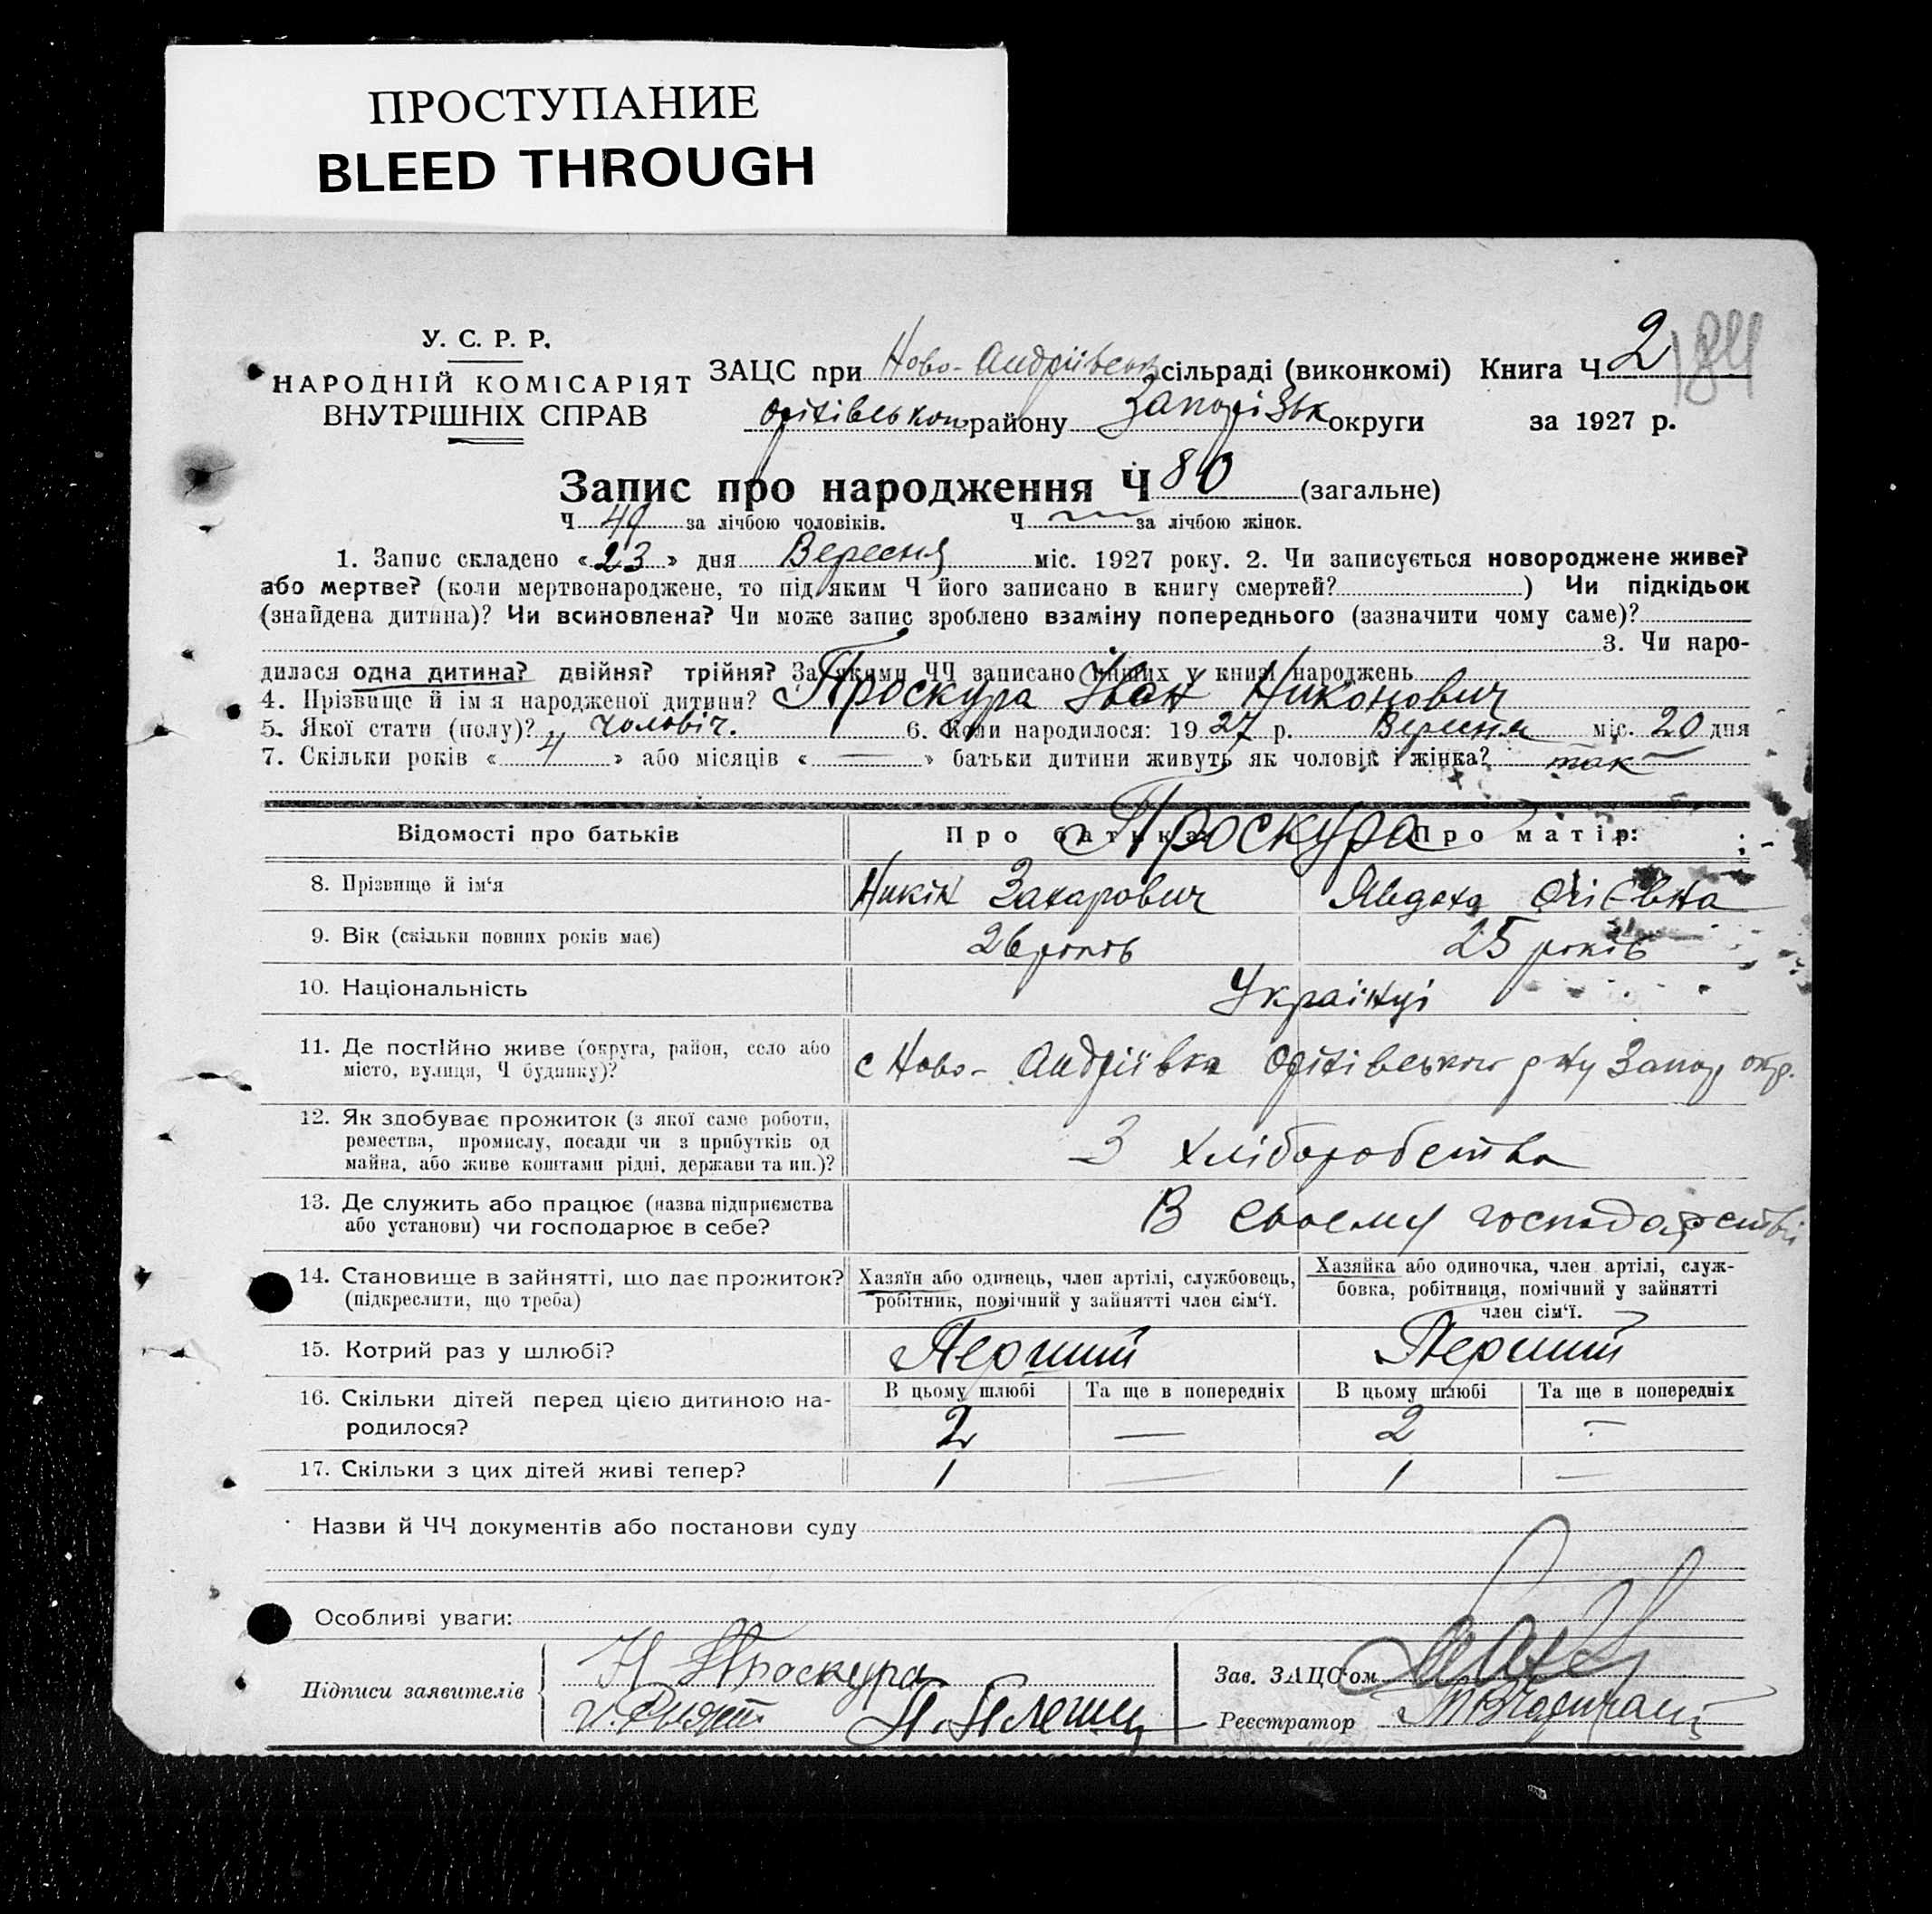 ПРОСТУПАНИЕ
BLEED THROUGH
У. С. Р. Р.
НАРОДНІЙ КОМІСАРІЯТ
ВНУТРІШНІХ СПРАВ
ЗАЦС при Ново-Андріївськ сільраді (виконкомі) Книга Ч 2 184
Оріхівського району Запоріжськ округи за 1927 р.
Запис про народження Ч 80 (загальне)
Ч 49 за лічбою чоловіків. Ч — за лічбою жінок.
1. Запис складено «23» дня Вересня міс. 1927 року. 2. Чи записується новороджене живе?
або мертве? (коли мертвонароджене, то під яким Ч його записано в книгу смертей? ) Чи підкідьок
(знайдена дитина)? Чи всиновлена? Чи може запис зроблено взаміну попереднього (зазначити чому саме)?
3. Чи наро-
дилася одна дитина? двійня? трійня? За якими ЧЧ записано инших у книзі народжень
4. Прізвище й ім'я народженої дитини? Проскура Іван Никонович
5. Якої стати (полу)? чоловіч. 6. Коли народилося: 1927 р. Вересня міс. 20 дня
7. Скільки років «4» або місяців «—» батьки дитини живуть як чоловік і жінка? так
Відомості про батьків Про батька: Про матір:
Проскура
8. Прізвище й ім'я Никін Захарович Явдоха
9. Вік (скільки повних років має) 26 років 25 років
10. Національність Українці
11. Де постійно живе (округа, район, село або
місто, вулиця, Ч будинку)? с Ново-Андріївка Оріхівського р-ну Запор. окр.
12. Як здобуває прожиток (з якої саме роботи,
ремества, промислу, посади чи з прибутків од
майна, або живе коштами рідні, держави та ин.)? З хліборобства
13. Де служить або працює (назва підприємства
або установи) чи господарює в себе? В своєму господарстві
14. Становище в зайнятті, що дає прожиток?
(підкреслити, що треба)
Хазяїн або одинець, член артілі, службовець,
робітник, помічний у зайнятті член сім'ї.
Хазяйка або одиночка, член артілі, служ-
бовка, робітниця, помічний у зайнятті
член сім'ї.
15. Котрий раз у шлюбі? Перший Перший
16. Скільки дітей перед цією дитиною на-
родилося?
В цьому шлюбі Та ще в попередніх В цьому шлюбі Та ще в попередніх
2 — 2 —
17. Скільки з цих дітей живі тепер? 1 — 1 —
Назви й ЧЧ документів або постанови суду
Особливі уваги:
Підписи заявителів Н Проскура
Зав. ЗАЦС'ом
Реєстратор